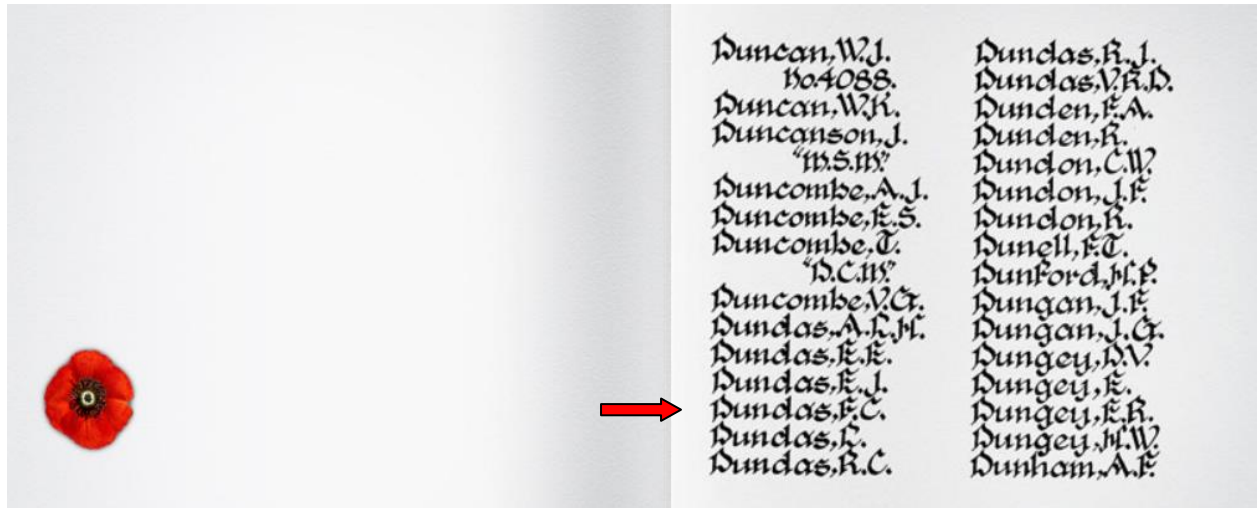 Duncan, W.J.
No. 4088.
Duncan, W.K.
Duncanson, J.
"M.S.M."
Duncombe, A.J.
Duncombe, E.S.
Duncombe, T.
"D.C.M."
Duncombe, V.G.
Dundas, A.L.H.
Dundas, E.E.
Dundas, E.J.
Dundas, F.C.
Dundas, L.
Dundas, R.C.
Dundas, R.J.
Dundas, V.R.D.
Dunden, F.A.
Dunden, R.
Dundon, C.W.
Dundon, J.F.
Dundon, R.
Dunell, F.T.
Dunford, H.P.
Dungan, J.F.
Dungan, J.G.
Dungey, D.V.
Dungey, E.
Dungey, E.R.
Dungey, H.W.
Dunham, A.F.